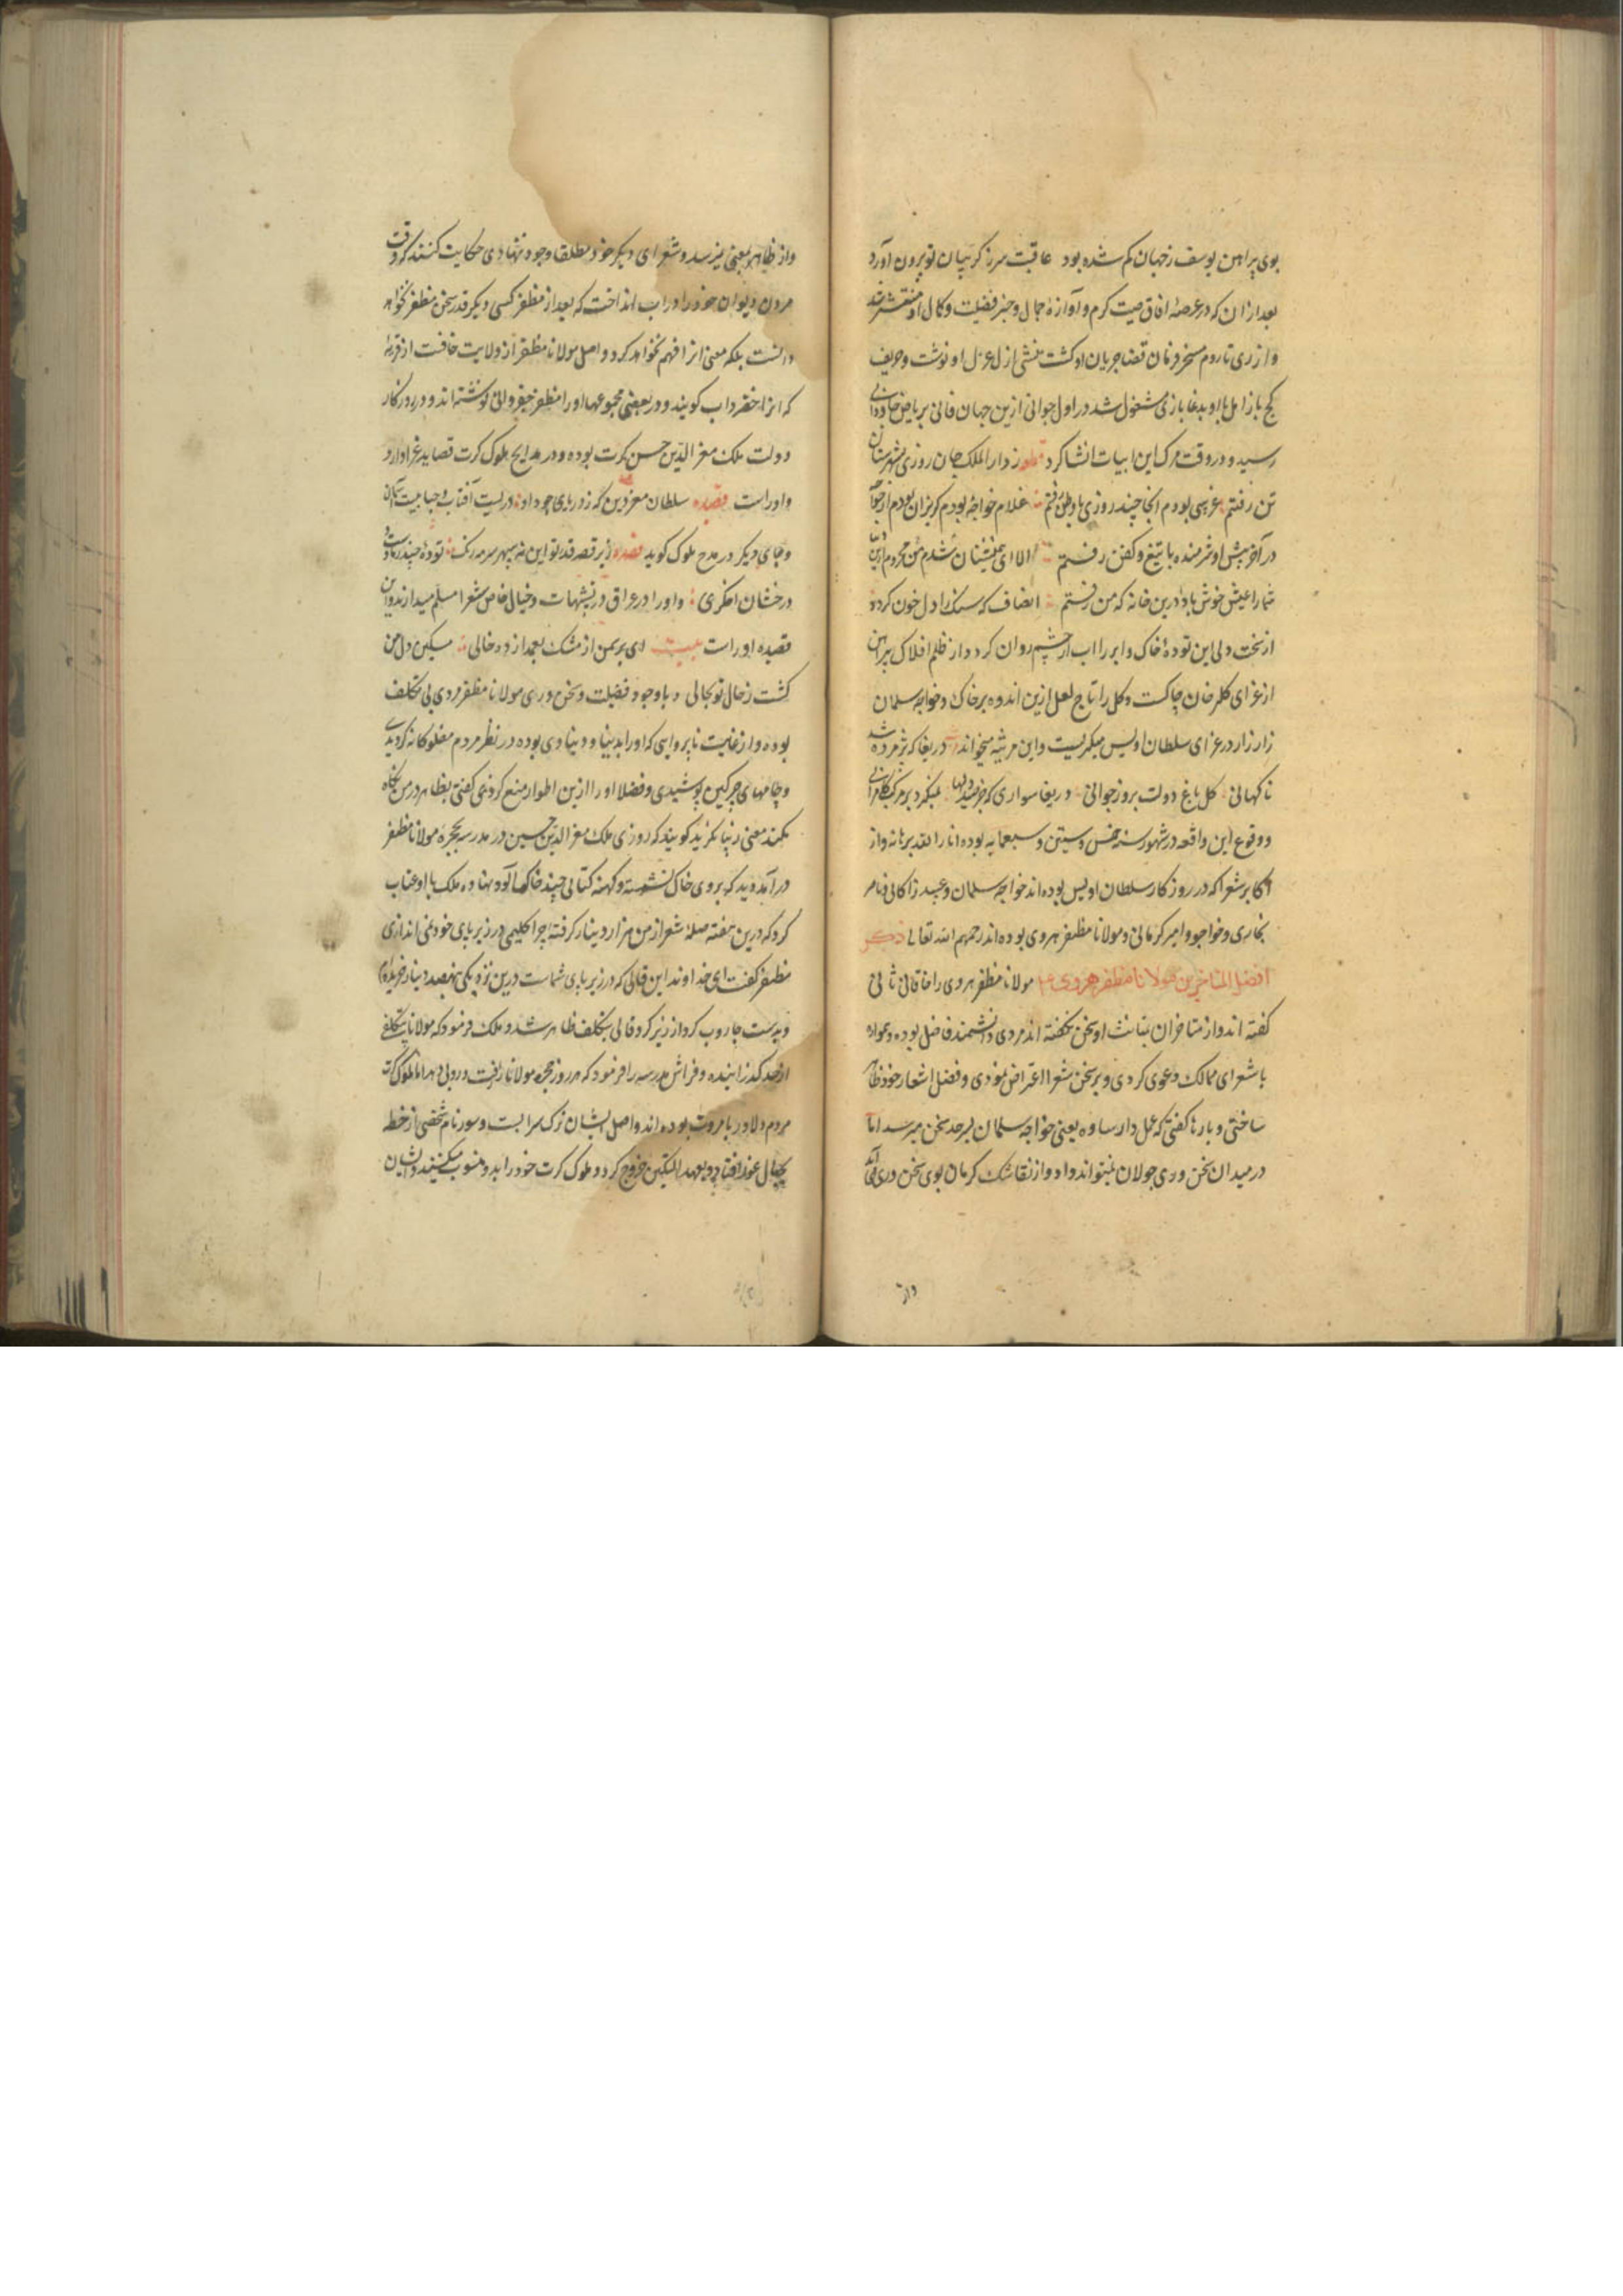 بوی پراهن یوسف ز جهان کم شده بود عاقبت سر ز کریبان تو برون آورد
بعد از ان که در عرصهٔ افاق صیت کرم و آوازهٔ جمال و خبر فضیلت و کمال او منتشر شد
و از ری تا روم مسخر فرمان قضا جریان او کشت منشی ازل عزل او نوشت و حریف
کج باز امل با او بدغا بازی مشغول شد در اول جوانی ازین جهان فانی بریاض جاودانی
رسید و در وقت مرک این ابیات انشا کرد ز دار الملک جان روزی بشهرستان
تن رفتم غریبی بودم انجا چند روزی با وطن رفتم غلام خواجهٔ بودم کریزان بودم از خواجه
در آخر پیش او شرمنده با تیغ و کفن رفتم الا ای همنشینان من شدم محروم ازین دنیا
شما را عیش خوش بادا درین خانه که من رفتم انصاف که سنک را دل خون کرده
از سخت دلی این تودهٔ خاک و ابر را اب از چشم روان کرد و از ظلم افلاک پیراهن
از عزای کلرخان چاکست و کل را تاج لعل ازین اندوه بر خاک و خواجه سلمان
زار زار در عزای سلطان اویس میکریست و این مرثیه میخواند دریغا که پژمرده شد
ناکهانی کل باغ دولت بروز جوانی دریغا سواری که جز صید دلها نمیکرد بر مرکب کامرانی
و وقوع این واقعه در شهور سنه خمس و ستین و سبعمایه بوده انار الله برهانه و از
اکابر شعرا که در روزکار سلطان اویس بوده اند خواجه سلمان و عبید زاکانی و ناصر
بخاری و خواجو و امیر کرمانی و مولانا مظفر هروی بوده اند رحمهم الله تعالی ذکر
افضل المتاخرین مولانا مظفر هروی مولانا مظفر هروی را خاقانی ثانی
کفته اند و از متاخران بمتانت او سخن نکفته اند مردی دانشمند فاضل بوده و همواره
با شعرای ممالک دعوی کردی و بر سخن شعرا اعتراض نمودی و فضل اشعار خود ظاهر
ساختی و بارها کفتی که عمل دار ساوه یعنی خواجه سلمان بسرحد سخن میرسد اما
در میدان سخن وری جولان نمیتواند داد و از نقاشک کرمان بوی سخن وری می آید
واز
و از ظاهر بمعنی میرسد و شعرای دیکر خود مطلقا وجود ننهادی حکایت کنند که در وقت
مردن دیوان خود را در اب انداخت که بعد از مظفر کسی دیکر قدر سخن مظفر نخواهد
دانست بلکه معنی انرا فهم نخواهد کرد و اصل مولانا مظفر از ولایت خافست از قریهٔ
که انرا خضرداب کویند و در بعضی مجموعها او را مظفر نوشته اند و در روزکار
دولت ملک معز الدین حسن کرت بوده و در مدایح ملوک کرت قصاید غرا دارد
و اوراست قصیده سلطان معز دین که ز دریای جود او
و جای دیکر در مدح ملوک کوید قصیده زیر قصر قدر تو این نه سپهر سرمه رنک تودهٔ چند
درخشان اخکری و او را در عراق در تشبیهات و خیال خاص شعرا مسلم میدارند و این
قصیده اوراست بیت ای بر سمن از مشک بعمدا زده خالی مسکین دل من
کشت ز حال تو بحالی و با وجود فضیلت و سخن وری مولانا مظفر مردی بی تکلف
بوده و از غایت ناپروایی که او را بدنیا و دنیاوی بوده در نظر مردم مفلوکانه کردیدی
و جامهای چرکین پوشیدی و فضلا او را ازین اطوار منع کردندی کفتی بظاهر در من نکاه
مکنید معنی زیبا نکرید کویند که روزی ملک معز الدین حسین در مدرسه بحجرهٔ مولانا مظفر
در آمد دید که بر وی خاک نشسته و کهنه کتابی چند خاک آلود نهاده ملک با او عتاب
کرد که درین هفته صلهٔ شعر از من هزار دینار کرفتهٔ چرا کلیمی در زیر پای خود نمی اندازی
مظفر کفت ای خداوند این قالی که در زیر پای شماست درین نزدیکی بهفصد دینار خریده ام
و بدست جاروب کرد از زیر کرد قالی بتکلف ظاهر شد و ملک فرمود که مولانا بی تکلفی
از حد کذرانیده و فراش مدرسه را فرمود که هر روز حجره مولانا را برفت و روبی دهد اما ملوک کرت
مردم دلاور بامروت بوده اند و اصل ایشان ترک سرابست و سور نام شخصی از خطه
بجبال غور افتاد و بعهد الپتکین خروج کرد و ملوک کرت خود را بدو منسوب میکنند و ایشان